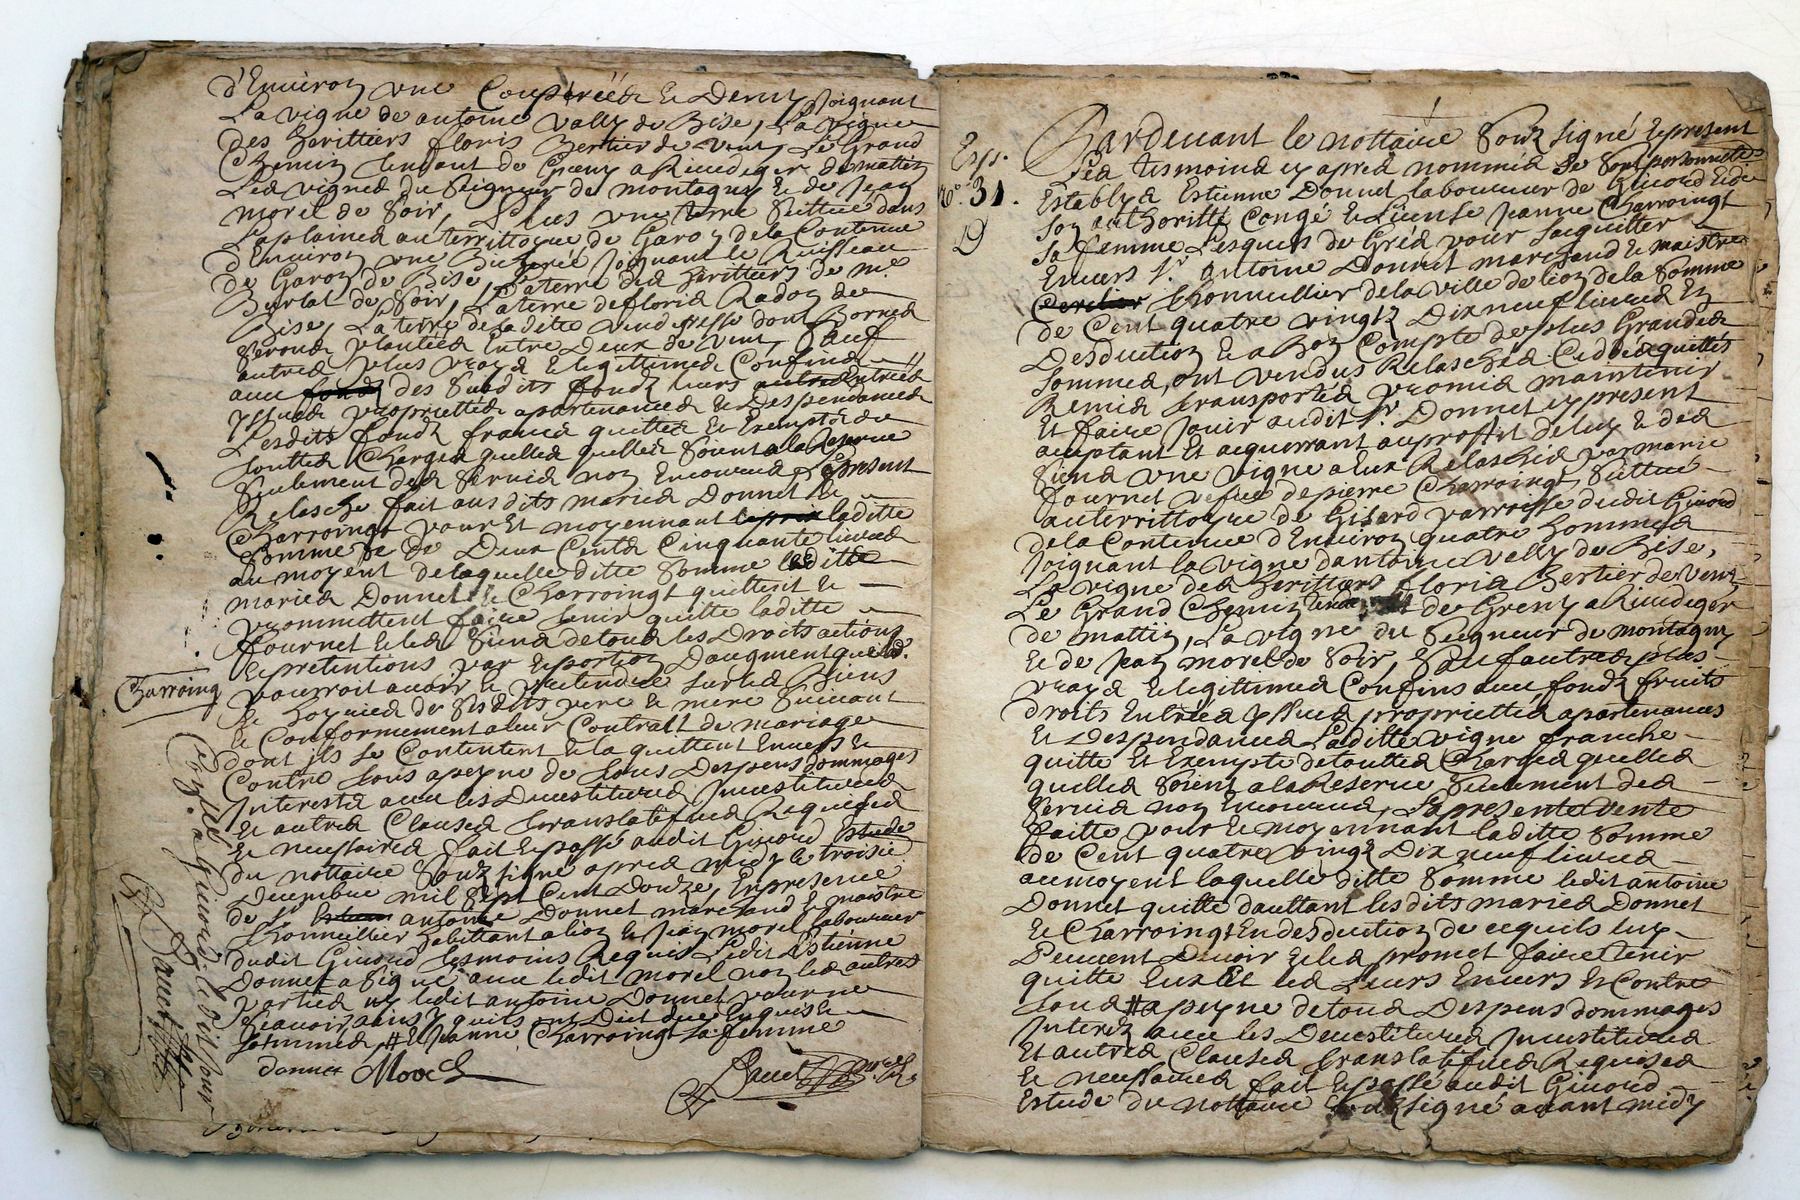 d'Enuiron vne Coupérée & Demy Joignant
La vigne de antoine Vally de Bise, La vigne
des heritiers floris Bertier de vent, Le Grand
Chemin tendant de Greny a Riuedeger de matin
Les vignes du Seigneur de montagny & de Jean
morel de Soir, Plus vne terre Scittuée dans
Laplaine au territtoyre de Garon dela Contenue
d'Enuiron vne Bicherée Joignant le Ruisseau
de Garon de Bise, La terre des heritiers de me
Burlat de Soir, La terre de floris Radon de
Bise, La terre de laditte venderesse dont Bornes
Seronds plantées Entre Deux de vent, Sauf
autres plus vrays & legittimes Confins
auec des Susdits fonds leurs Entrées
yssues proprietés apartenances & Despendances
Lesdits fonds francs quittes & Exempts de
touttes Charges quelles quelles Soient a la Reserue
Seulement des Seruis non Encourus Le present
Relasche fait ausdits mariés Donnet &
Charroingt pour Et moyennant laditte
Somme de Deux Cents Cinquante liures
au moyent delaquelle ditte Somme lesditts
mariés Donnet & Charroingt quittent &
promettent faire tenir quitte laditte
fournet & les Siens de tous les Droits actions
& pretentions par & portion Daugment quelle
pourroit auoir & pretendre Sur les Biens
& hoyries de Sesdits pere & mere Suiuant
& Conformement a leur Contrat de mariage
dont ils Se Contentent & la quittent Enuers &
Contre tous a peyne de tous Despens dommages
Interests auec les Deuestitures Inuestitures
Et autres Clauses translatifues Requises
Et necessaires fait & passé audit Giuord Estude
du nottaire Souzsigné apres midy le troisie
decembre mil Sept Cent Douze, En presence
de Sr antoine Donnet marchand & maistre
thonnellier habittant a lion & Jean morel laboureur
dudit Giuord tesmoins Requis Ledit Estienne
Donnet a Signé auec ledit morel non les autres
parties ny ledit antoine Donnet pour ne
Scauoir, ainsy quils ont Dit de ce Enquis &
Sommés # & Jeanne Charroingt Sa femme
donnet Morel
Charroing
Conllé a Giuord le dix Jour
Exp.
R.° 31.
D
Pardeuant le nottaire Souz signé & present
Les tesmoins cy apres nommés Se Sont personnelle
Establys Estienne Donnet laboureur de Giuord & de
Son authoritté Congé & License Jeanne Charroingt
Sa femme Lesquels de Grés pour Sacquitter
Enuers Sr antoine Donnet marchand & maistre
thonnellier de la ville de lion de la Somme
de Cent quatre vingtz Dix neuf liures En
Desduction & a Bon Compte de plus Grandes
Sommes, ont vendus Relaschés Ceddés quittés
Remis transportés promis maintenir
Et faire Jouir audit Sr Donnet cy present
acceptant Et acquerrant au proffit De luy & des
Siens vne vigne a Eux Relaschée par marie
fournet vefue de pierre Charroingt Scittuée
au territtoyre de Gisard parroisse dudit Giuord
dela Contenue d'Enuiron quatre hommées
Joignant la vigne dantoine Vally de Bise,
La vigne des heritiers floris Bertier de vent,
Le Grand Chemin tendant de Greny a Riuedeger
de mattin, La vigne du Seigneur de montagny
& de Jean morel de Soir, Sauf autres plus
vrays & legittimes Confins auec fondz fruits
droits Entrées yssues proprietés apartenances
Et Despendances Laditte vigne franche
quitte Et Exempte de touttes Charges quelles
quelles Soient a la Reserue Seulement des
Seruis non Encourus, La presente vente
faitte pour & moyennant laditte Somme
de Cent quatre vingtz Dix neuf liures
au moyent laquelle ditte Somme ledit antoine
Donnet quitte daultant les dits mariés Donnet
& Charroingt En desduction de ce quils luy
Peuuent Deuoir & les promet faire tenir
quitte Eux Et les Leurs Enuers & Contre
tous # a peyne de tous Despens dommages
Interetz auec les Deuestitures Inuestitures
Et autres Clauses translatifues Requises
& necessaires fait & passé audit Giuord
Estude du nottaire Souzsigné auant midy